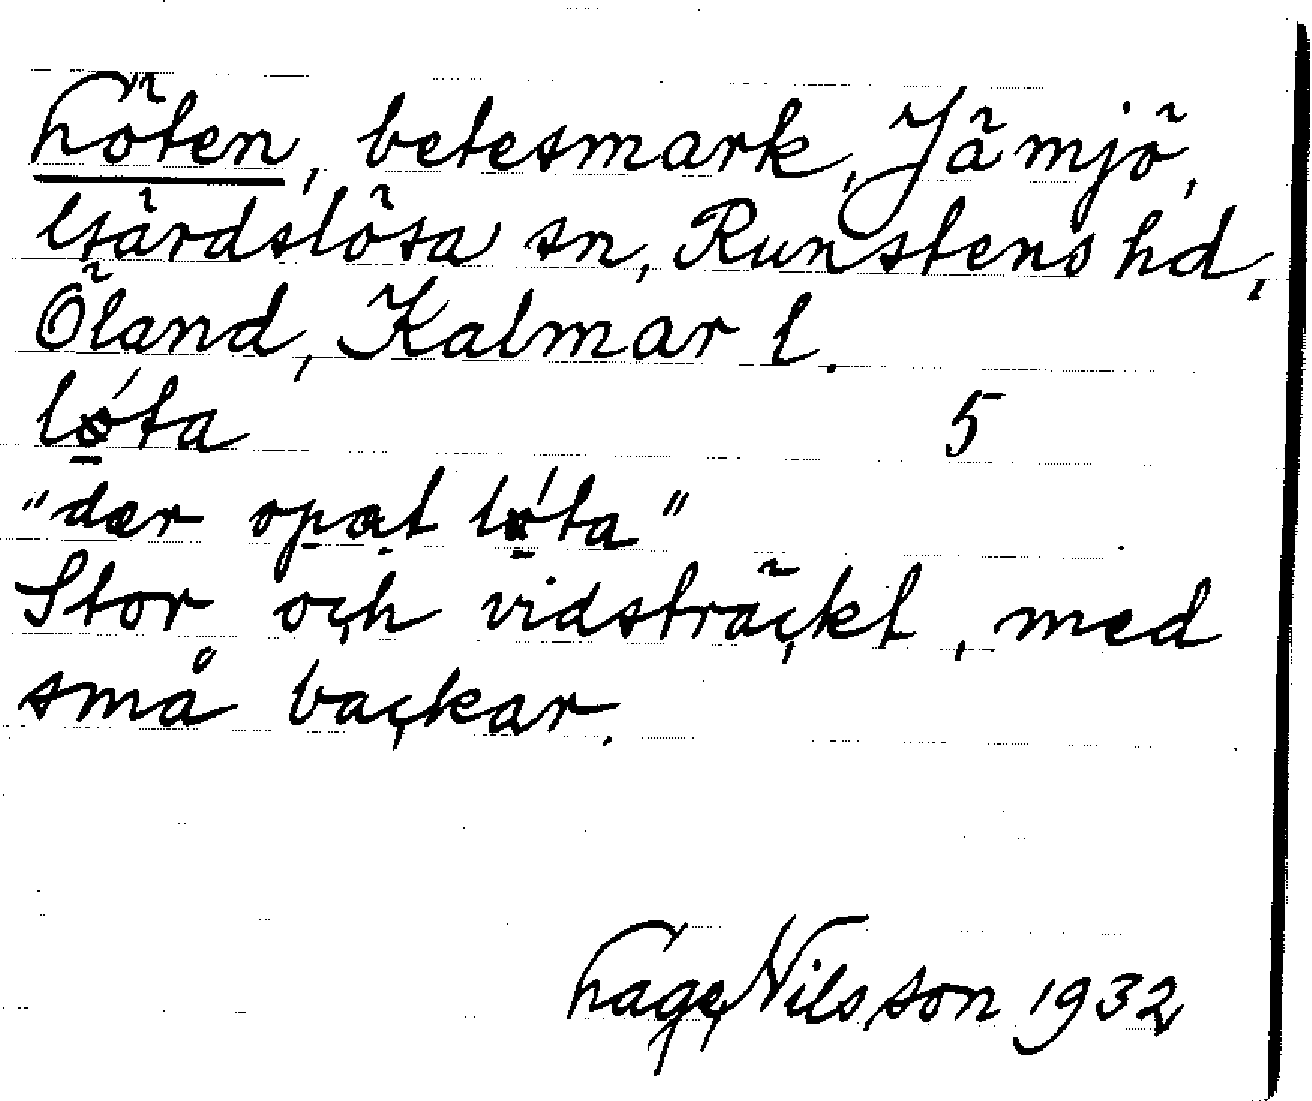 Löten, betesmark, Jämjö,
Gärdslösa sn, Runstens hd,
Öland, Kalmar l.
lǿta 5
"dær opat lǿta"
Stor och vidsträckt, med
små backar.
Lage Nilsson 1932